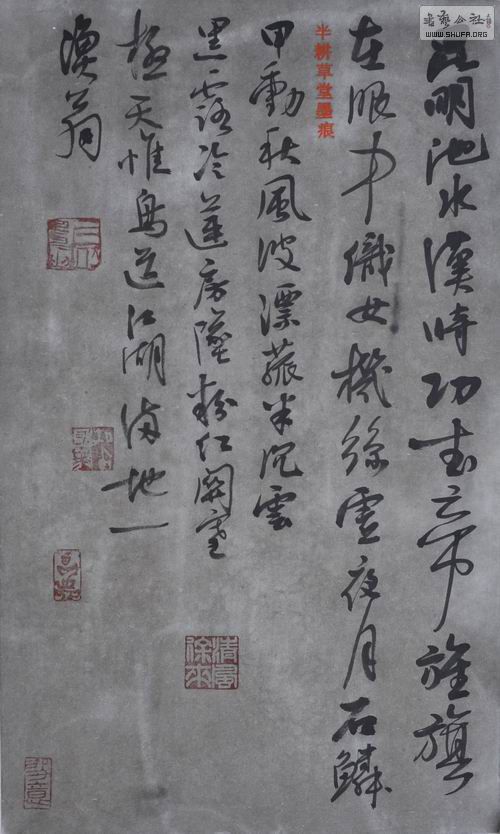 昆明池水漢時功武帝旌旗
在眼中織女機絲虛夜月石鱗
甲動秋風波漂菰米沉雲
黑露冷蓮房墜粉紅關塞
極天惟鳥道江湖滿地一
漁翁
半耕草堂墨痕
清風徐來
書藝公社
WWW.SHUFA.ORG